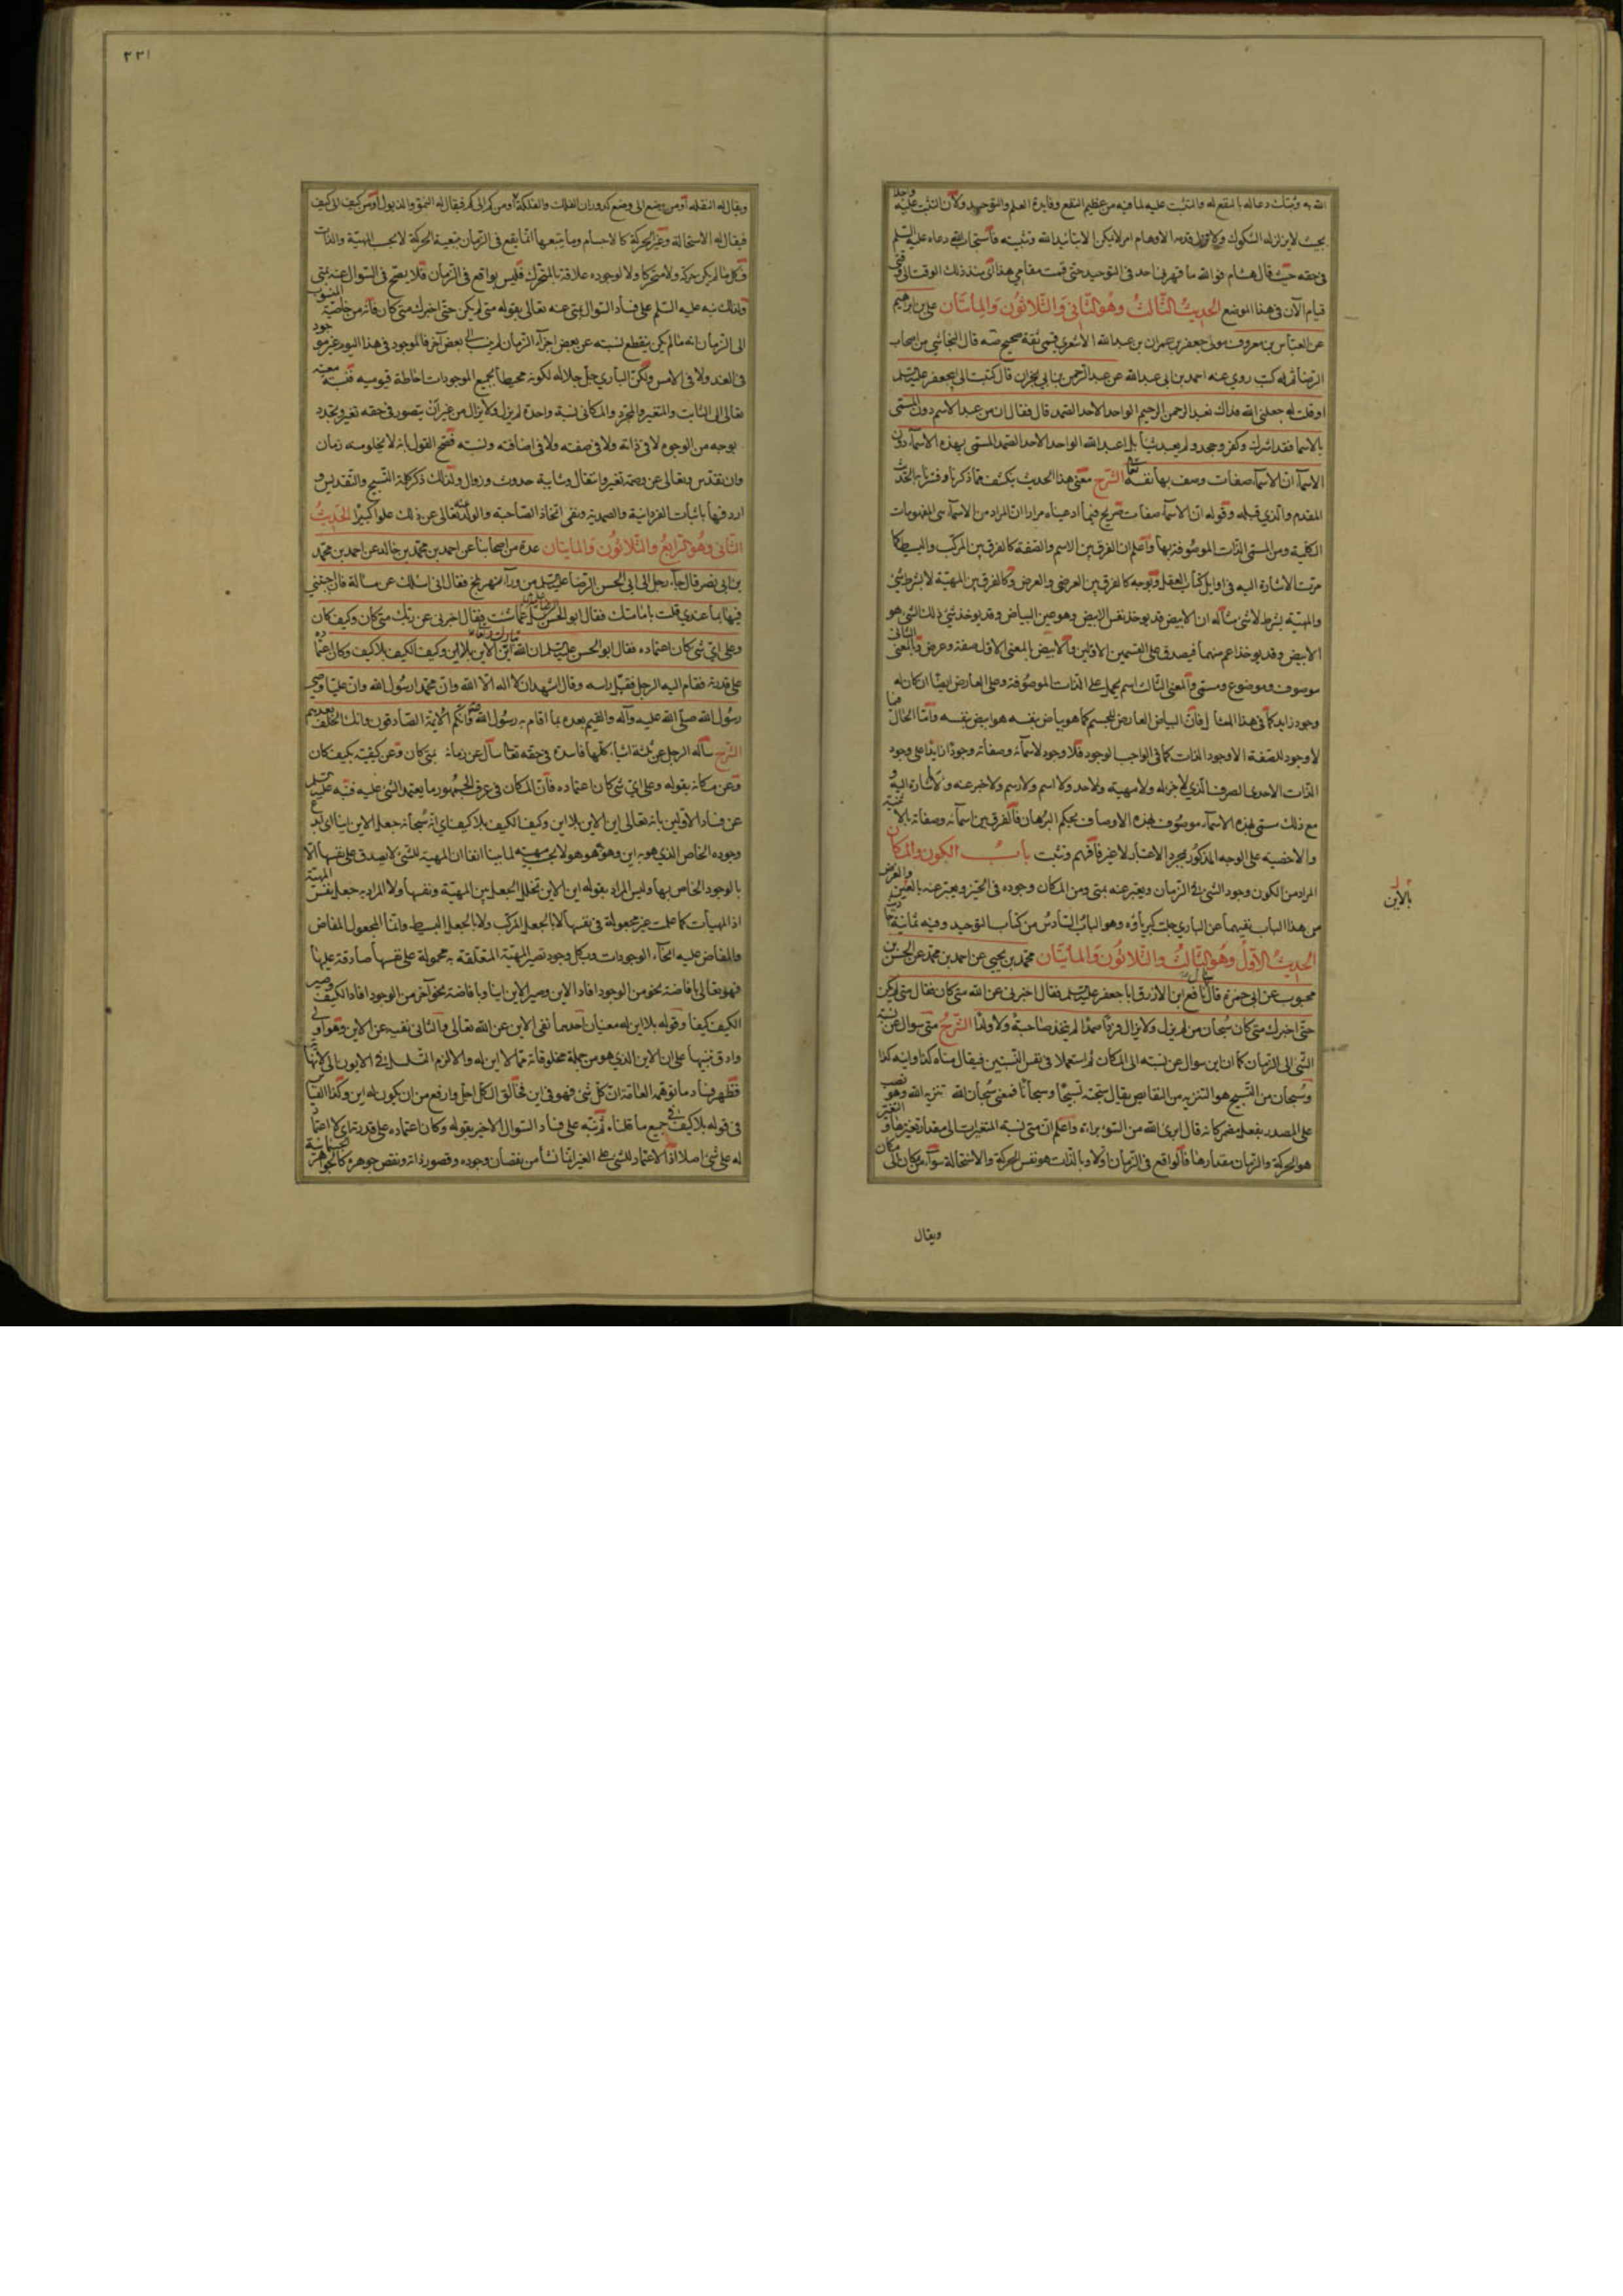 الله به وثبتك دعا له بالنفع له والتثبت عليه لما فيه من عظيم النفع وفايدة العلم والتوحيد ولان التثبت عليه واجب
بحيث لا يزلزله الشكوك ولا تزل قدمه الاوهام امر لا يمكن الا بتائيد الله وتثبيته فاستجاب الله دعاه عليه السلم
فى حقه حيث قال هشام فوالله ما قهرنى احد فى التوحيد حتى قمت مقامي هذا اى منذ ذلك الوقت الى وقت
قيام الآن فى هذا الموضع الحديث الثالث وهو الثانى والثلاثون والمأتان على بن ابرهيم
عن العباس بن معروف مولى جعفر بن عمران بن عبدالله الاشعري قمى ثقة صحيح قال النجاشي من اصحاب
الرضا له كتب روي عنه احمد بن ابى عبدالله عن عبدالرحمن بن ابي نجران قال كتبت الى ابي جعفر عليه السلم
او قلت له جعلنى الله فداك نعبد الرحمن الرحيم الواحد الاحد الصمد قال فقال ان من عبد الاسم دون المسمى
بالاسما فقد اشرك وكفر وجحد ولم يعبد شيئا بل اعبد الله الواحد الاحد الصمد المسمى بهذه الاسمآء دون
الاسمآء ان الاسمآء صفات وصف بها نفسه تعالى الشرح معنى هذا الحديث يكشف مما ذكرنا وفسرنا به الحديث
المقدم والذي قبله وقوله ان الاسمآء صفات تصريح فيما ادعيناه مرارا ان المراد من الاسمآء هى المفهومات
الكلية ومن المسمى الذات الموصوفة بها واعلم ان الفرق بين الاسم والصفة كالفرق بين المركب والبسيط كما
مرت الاشارة اليه فى اوايل كتاب العقل وبوجه كالفرق بين العرضى والعرض وكالفرق بين المهية لا بشرط شئ
والمهية بشرط لا شئ مثاله ان الابيض قد يوخذ نفس الابيض وهو عين البياض وقد يوخذ شئ ذلك الشئ هو
الابيض وقد يوخذ اعم منهما فيصدق على القسمين الاولين فالابيض بالمعنى الاول صفة وعرض وبالمعنى الثانى
موصوف وموضوع ومسمى وبالمعنى الثالث اسم يحمل على الذات الموصوفة وعلى العارض ايضا ان كان له
وجود زايد كما فى هذا المثال فان البياض العارض للجسم كما هو بياض بنفسه هو ابيض بنفسه واما الحال هنا
لا وجود للصفة الا وجود الذات كما فى الواجب الوجود فلا وجود لاسمآئه وصفاته وجودا زايدا على وجود
الذات الاحدى الصرف الذي لا جزء له ولا مهية ولا حد ولا اسم ولا رسم ولا خبر عنه ولا اشارة اليه و
مع ذلك مسمى بهذه الاسمآء موصوف بهذه الاوصاف بحكم البرهان فالفرق بين اسمآئه وصفاته بالاعمية
والاخصية على الوجه المذكور بمجرد الاعتبار لا غير فافهم وتثبت باب الكون والمكان
المراد من الكون وجود الشئ فى الزمان ويعبر عنه بمتى ومن المكان وجوده فى الحيز ويعبر عنه بالاين والغرض
من هذا الباب نفيهما عن الباري جلت كبرياؤه وهو الباب السادس من كتاب التوحيد وفيه ثمانية احاديث
الحديث الاول وهو الثالث والثلاثون والمأتيان محمد بن يحيى عن احمد بن محمد عن الحسن بن
محبوب عن ابى حمزة قال سال نافع ابن الازرق ابا جعفر عليه السلم فقال اخبرنى عن الله متى كان فقال متى لم يكن
حتى اخبرك متى كان سبحان من لم يزل ولا يزال فردا صمدا لم يتخذ صاحبة ولا ولدا الشرح متى سوال عن نسبة
الشئ الى الزمان كما ان اين سوال عن نسبته الى المكان ثم استعملا فى نفس النسبتين فيقال متاه كذا واينه كذا
وسبحان من التسبيح هو التنزيه من النقايص يقال سبحته تسبيحا وسبحانا فمعنى سبحان الله تنزيه الله وهو نصب
على المصدر بفعل مضمر كانه قال ابرئ الله من السوء براءة واعلم ان متى نسبة المتغيرات الى مقدار تغيرها و التغير
هو الحركة والزمان مقدارها فالواقع فى الزمان اولا وبالذات هو نفس الحركة والاستحالة سوآء من مكان الى مكان
ويقال
بالاين
٢٢١
ويقال له النقله او من وضع الى وضع كدوران الفلك والفلكة او من كم الى كم فيقال له النمو والذبول او من كيف الى كيف
فيقال له الاستحالة وغير الحركة كالاجسام وما يتبعها انما يقع فى الزمان بتبعية الحركة لا بحسب المهية والذات
فكل ما لم يكن حركة ولا متحركا ولا لوجوده علاقة بالمتحرك فليس بواقع فى الزمان فلا يصح فى السوال عنه بمتى
ولذلك نبه عليه السلم على فساد السوال بمتى عنه تعالى بقوله متى لم يكن حتى اخبرك متى كان فانه من خاصية المنسوب
الى الزمان انه ما لم يكن ينقطع نسبته عن بعض اجزآء الزمان لم ينسب الى بعض آخر فالموجود فى هذا اليوم غير موجود
فى الغد ولا فى الامس ولكن الباري جل جلاله لكونه محيطا بجميع الموجودات احاطة قيومية فنسبة معيته
تعالى الى الثابت والمتغير والمجرد والمكانى نسبة واحدة لم يزل ولا يزال من غير ان يتصور فى حقه تغير وتجدد
بوجه من الوجوه لا فى ذاته ولا فى صفته ولا فى اضافته ونسبته فصح القول بانه لا يخلو منه زمان
وان تقدس وتعالى عن وصمة تغير وانتقال وشايبة حدوث وزوال ولذلك ذكر كلمة التسبيح والتقديس و
اردفها باثبات الفردانية والصمدية ونفى اتخاذ الصاحبة والولد عنه تعالى عن ذلك علوا كبيرا الحديث
الثانى وهو الرابع والثلاثون والمأيتان عدة من اصحابنا عن احمد بن محمد بن خالد عن احمد بن محمد
بن ابى نصر قال جاء رجل الى ابى الحسن الرضا عليه السلم من ورآء نهر بلخ فقال انى اسئلك عن مسالة فان اجبتني
فيها بما عندي قلت بامامتك فقال ابو الحسن عليه السلم سل عما شئت فقال اخبرنى عن ربك متى كان وكيف كان
وعلى اى شئ كان اعتماده فقال ابو الحسن عليه السلم ان الله تبارك وتعالى اين الاين بلا اين وكيف الكيف بلا كيف وكان اعتماده
على قدرته فقام اليه الرجل فقبل راسه وقال اشهد ان لا اله الا الله وان محمدا رسول الله وان عليا وصى
رسول الله صلى الله عليه وآله والقيم بعده بما اقام به رسول الله وانكم الائمة الصادقون وانك الخلف بعدهم
الشرح ساله الرجل عن ثلثة اشياء كلها فاسدة فى حقه تعالى سال عن زمانه بمتى كان وعن كيفيته بكيف كان
وعن مكانه بقوله وعلى اى شئ كان اعتماده فان المكان فى عرف الجمهور ما يعتمد الشئ عليه فنبه عليه السلم
عن فساد الاولين بانه تعالى اين الاين بلا اين وكيف الكيف بلا كيف اي انه سبحانه جعل الاين اينا اى ابدع
وجوده الخاص الذي هو به اين وهو هو هو لا بحسب مهيته لما بينا انفا ان المهية للشئ لا يصدق على نفسها الا
بالوجود الخاص بها وليس المراد بقوله اين الاين تخلل الجعل بين المهية ونفسها ولا المراد به جعل نفس المهية
اذ المهيأت كما علمت غير مجعولة فى نفسها لا بالجعل المركب ولا بالجعل البسيط وانما المجعول المفاض
والمفاض عليه انحآء الوجودات وبكل وجود تصير المهية المتعلقة به محمولة على نفسها صادقة عليها
فهو تعالى بافاضة نحو من الوجود افاد الاين وصير الاين اينا وبافاضة نحو آخر من الوجود افاد الكيف وصير
الكيف كيفا وقوله بلا اين له معنيان احدهما نفى الاين عن الله تعالى والثانى نفيه عن الاين وهو اولى
وادق تنبيها على ان الاين الذي هو من جملة مخلوقاته مما لا اين له والا لزم التسلسل فى الايون الى لا نهاية
فظهر فساد ما توهمه العامة ان كل شئ فهو فى اين فخالق الكل اجل وارفع من ان يكون له اين وكذا القياس
فى قوله بلا كيف فى جميع ما قلناه ثم نبه على فساد السوال الاخير بقوله وكان اعتماده على قدرته اى لا اعتماد
له على شئ اصلا اذ الاعتماد للشئ على الغير انما نشأ من نقصان وجوده وقصور ذاته ونقص جوهره كالجواهر الجسمانية